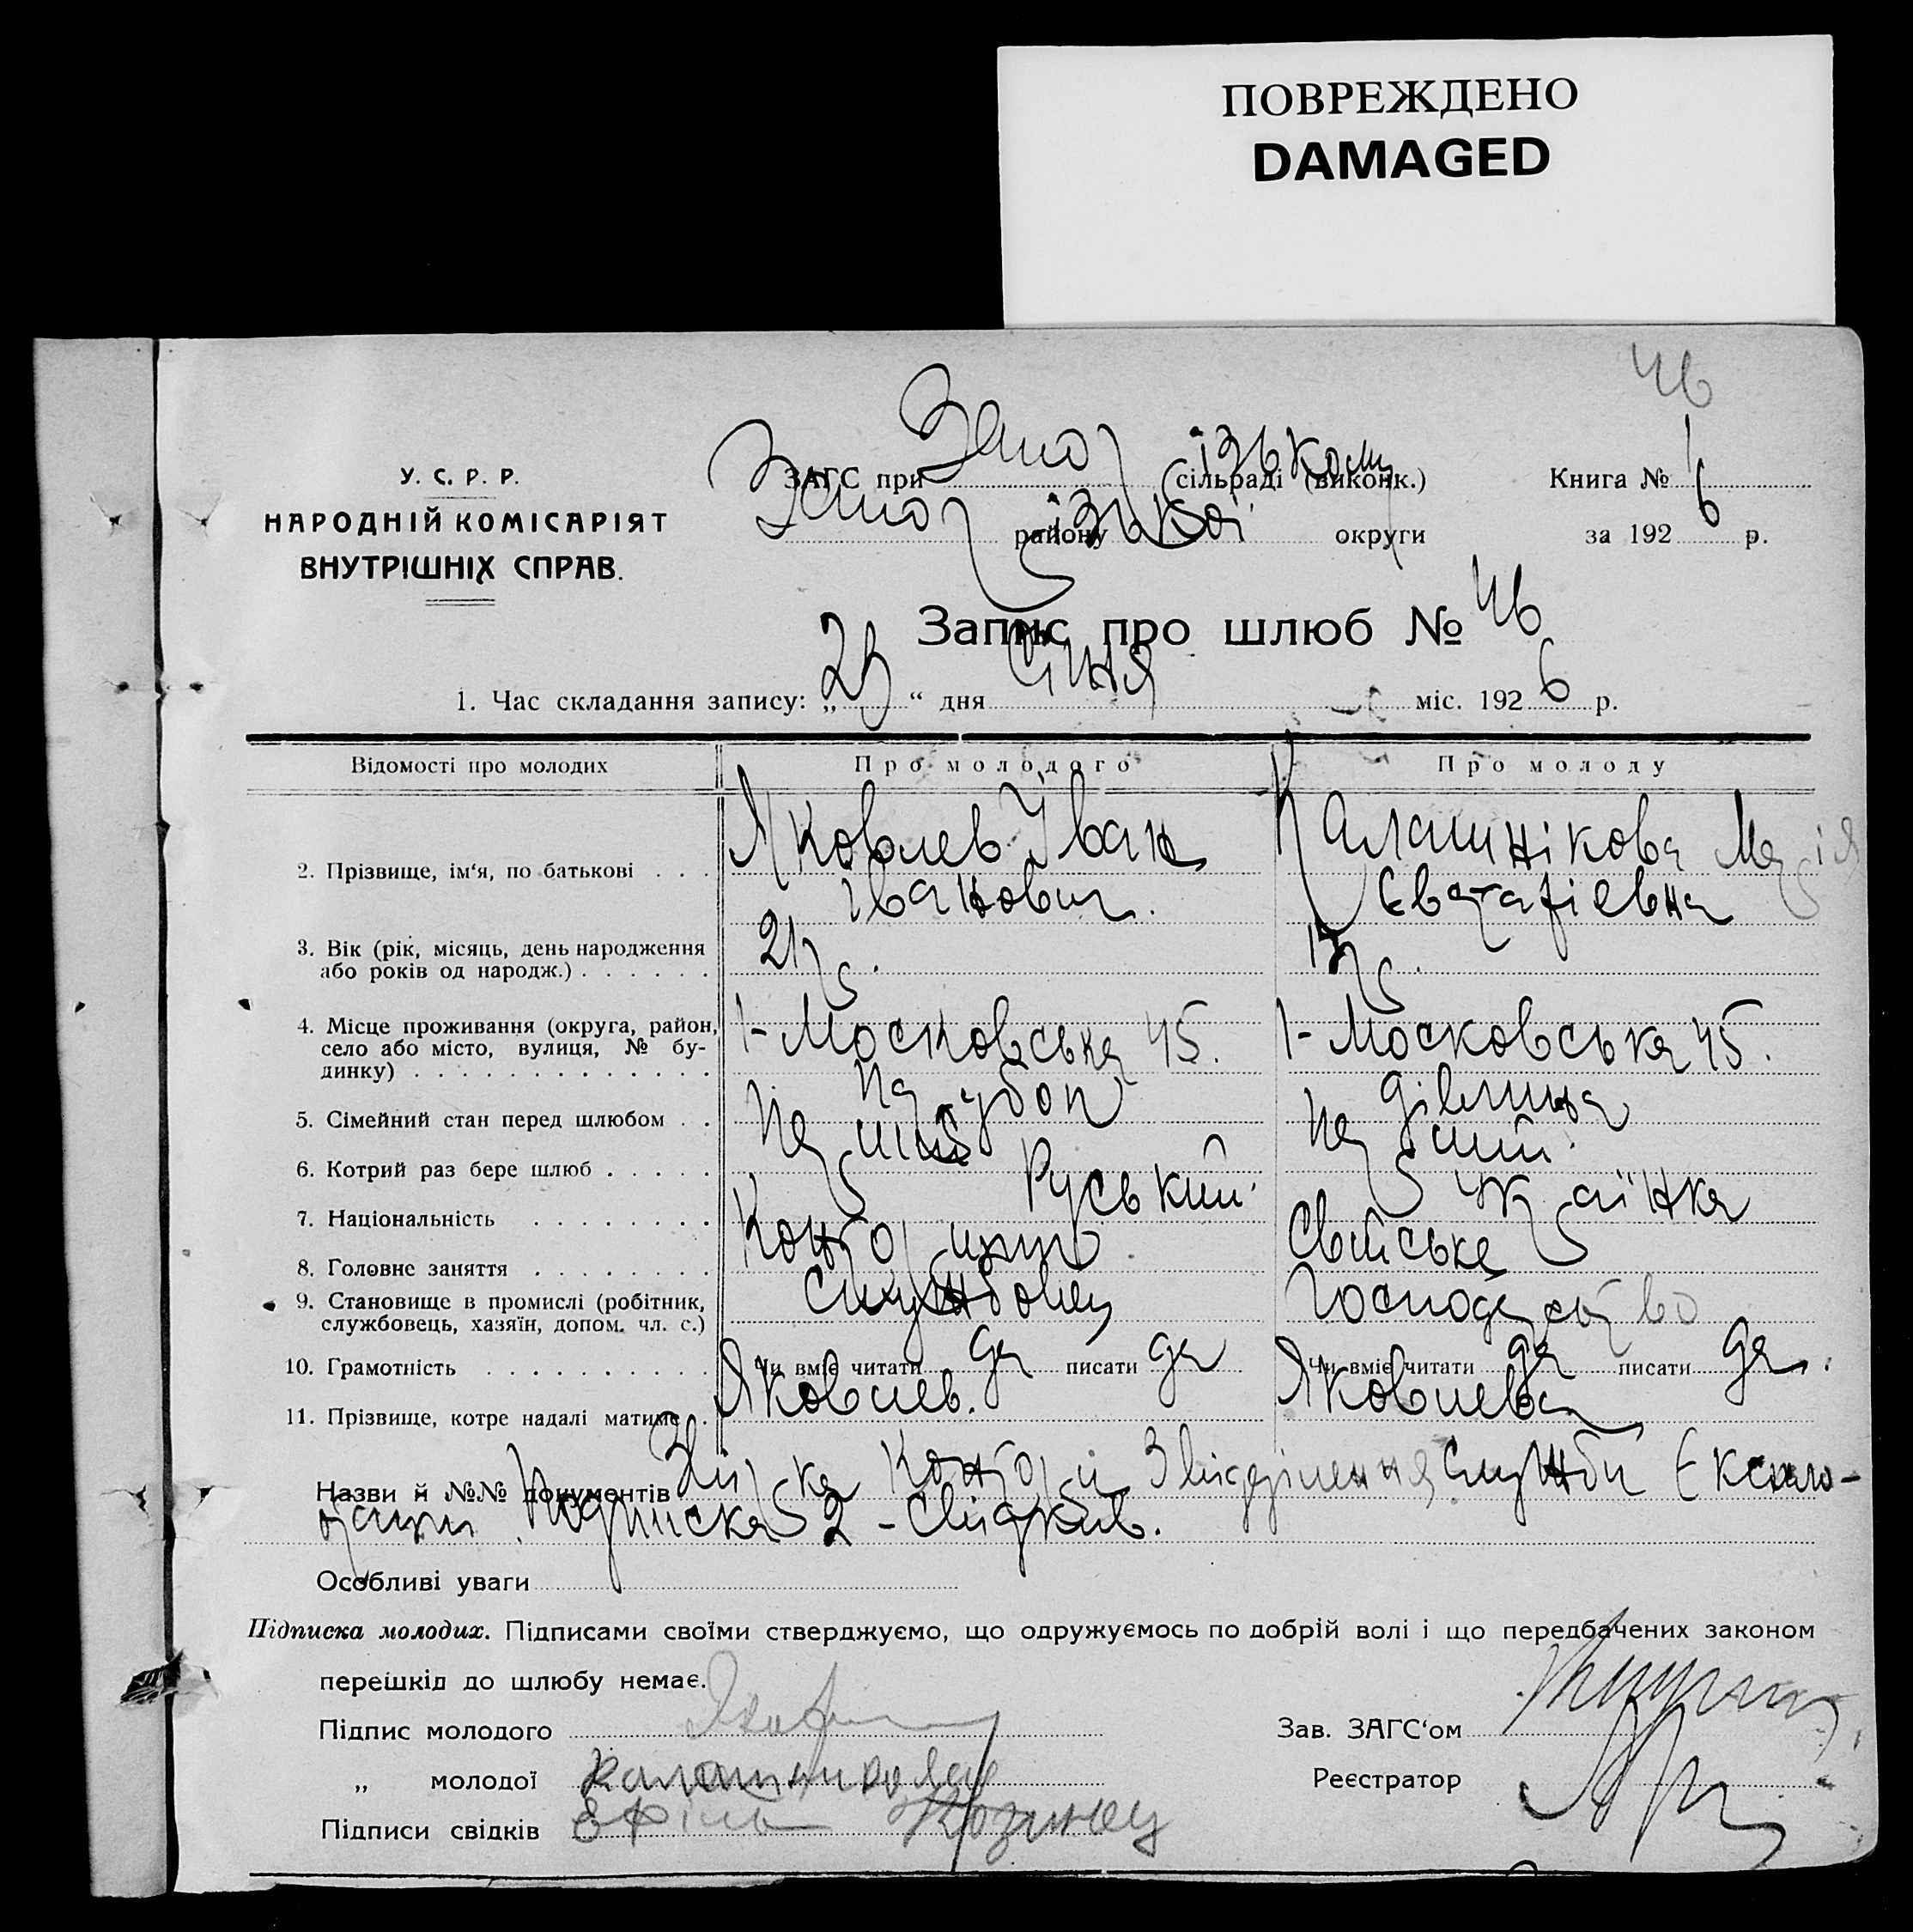 ПОВРЕЖДЕНО
DAMAGED
46
У. С. Р. Р.
НАРОДНІЙ КОМІСАРІЯТ
ВНУТРІШНІХ СПРАВ.
ЗАГС при Запорізькому (сільраді (виконк.) Книга № 1
Запорізької району округи за 1926 р.
Запис про шлюб № 46
1. Час складання запису: „ “ дня Січня міс. 1926 р.
Відомості про молодих Про молодого Про молоду
2. Прізвище, ім‘я, по батькові Яковлев Іван Калашнікова Марія
Іванович. Євстафіевна
3. Вік (рік, місяць, день народження або років од народж.) 21 р. р.
4. Місце проживання (округа, район, село або місто, вулиця, № будинку) 1-Московська 45. 1-Московська 45.
5. Сімейний стан перед шлюбом парубок дівчина
6. Котрий раз бере шлюб перший перший
7. Національність Руський Українка
8. Головне заняття Конторщик Свійське
9. Становище в промислі (робітник, службовець, хазяїн, допом. чл. с.) службовец Господарство
10. Грамотність Чи вміє читати да писати да Чи вміє читати да писати да
11. Прізвище, котре надалі матиме Яковлев. Яковлева
Назви й №№ документів Конторы Служби Експло-
Подписка 2 - свидків.
Особливі уваги
Підписка молодих. Підписами своїми стверджуємо, що одружуємось по добрій волі і що передбачених законом
перешкід до шлюбу немає.
Підпис молодого Зав. ЗАГС‘ом
„ молодої Калашникова Реєстратор
Підписи свідків